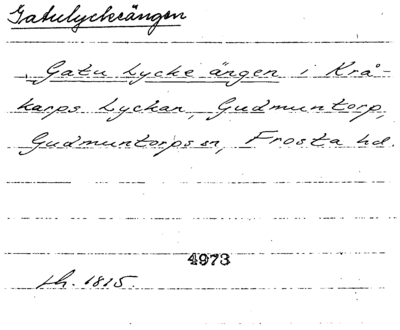 Gatulyckeängen
Gatu Lycke ängen i Krå-
karps Lyckan, Gudmuntorp,
Gudmuntorps sn, Frosta hd.
4973
Lh. 1815.